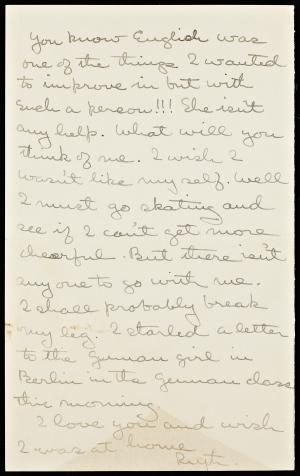 You know English was
one of the things I wanted
to improve in but with
such a person!!! She isn't
any help. What will you
think of me. I wish I
wasn't like my self. Well
I must go skating and
see if I can't get more
cheerful. But there isn't
any one to go with me.
I shall probably break
my leg. I started a letter
to the German girl in
Berlin in the German class
this morning
I love you and wish
I was at home
Ruth.